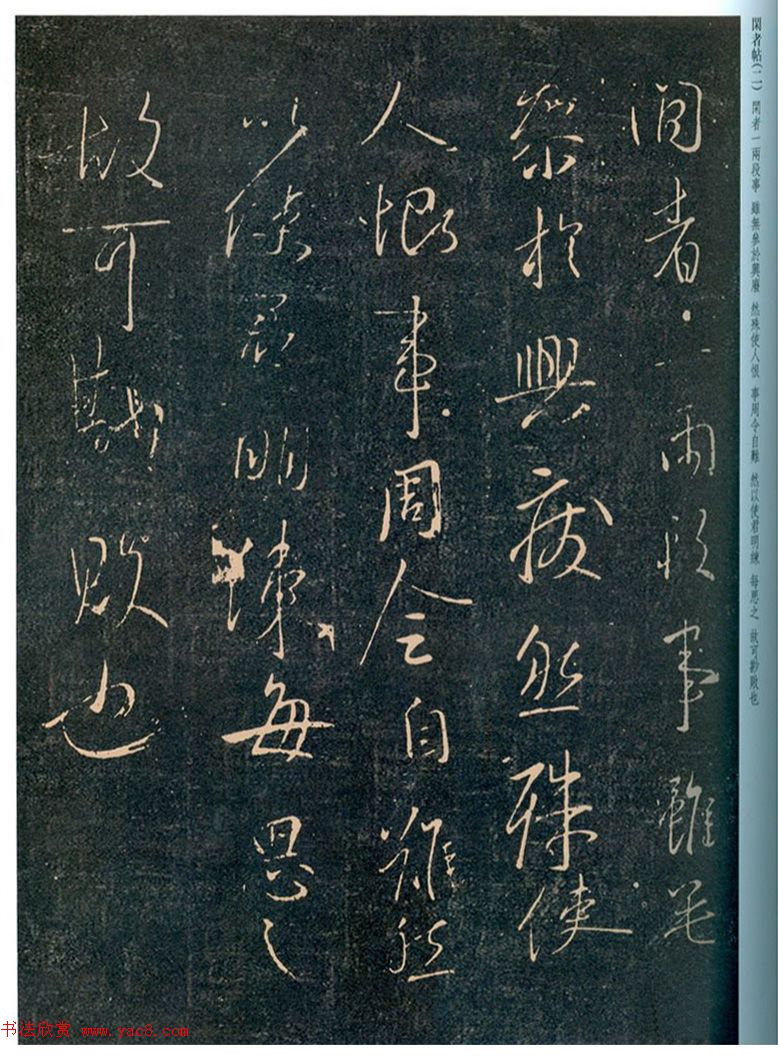 閑者帖(二) 閑者一兩段事 雖無參於興廢 然殊使人恨 事周令自難 然以使君明練 每思之 故可尠敗也
閒者一兩段事雖無
叅於興廢然殊使
人恨事周令自難然
以使君明練每思之
故可尠敗也
书法欣赏 www.yac8.com